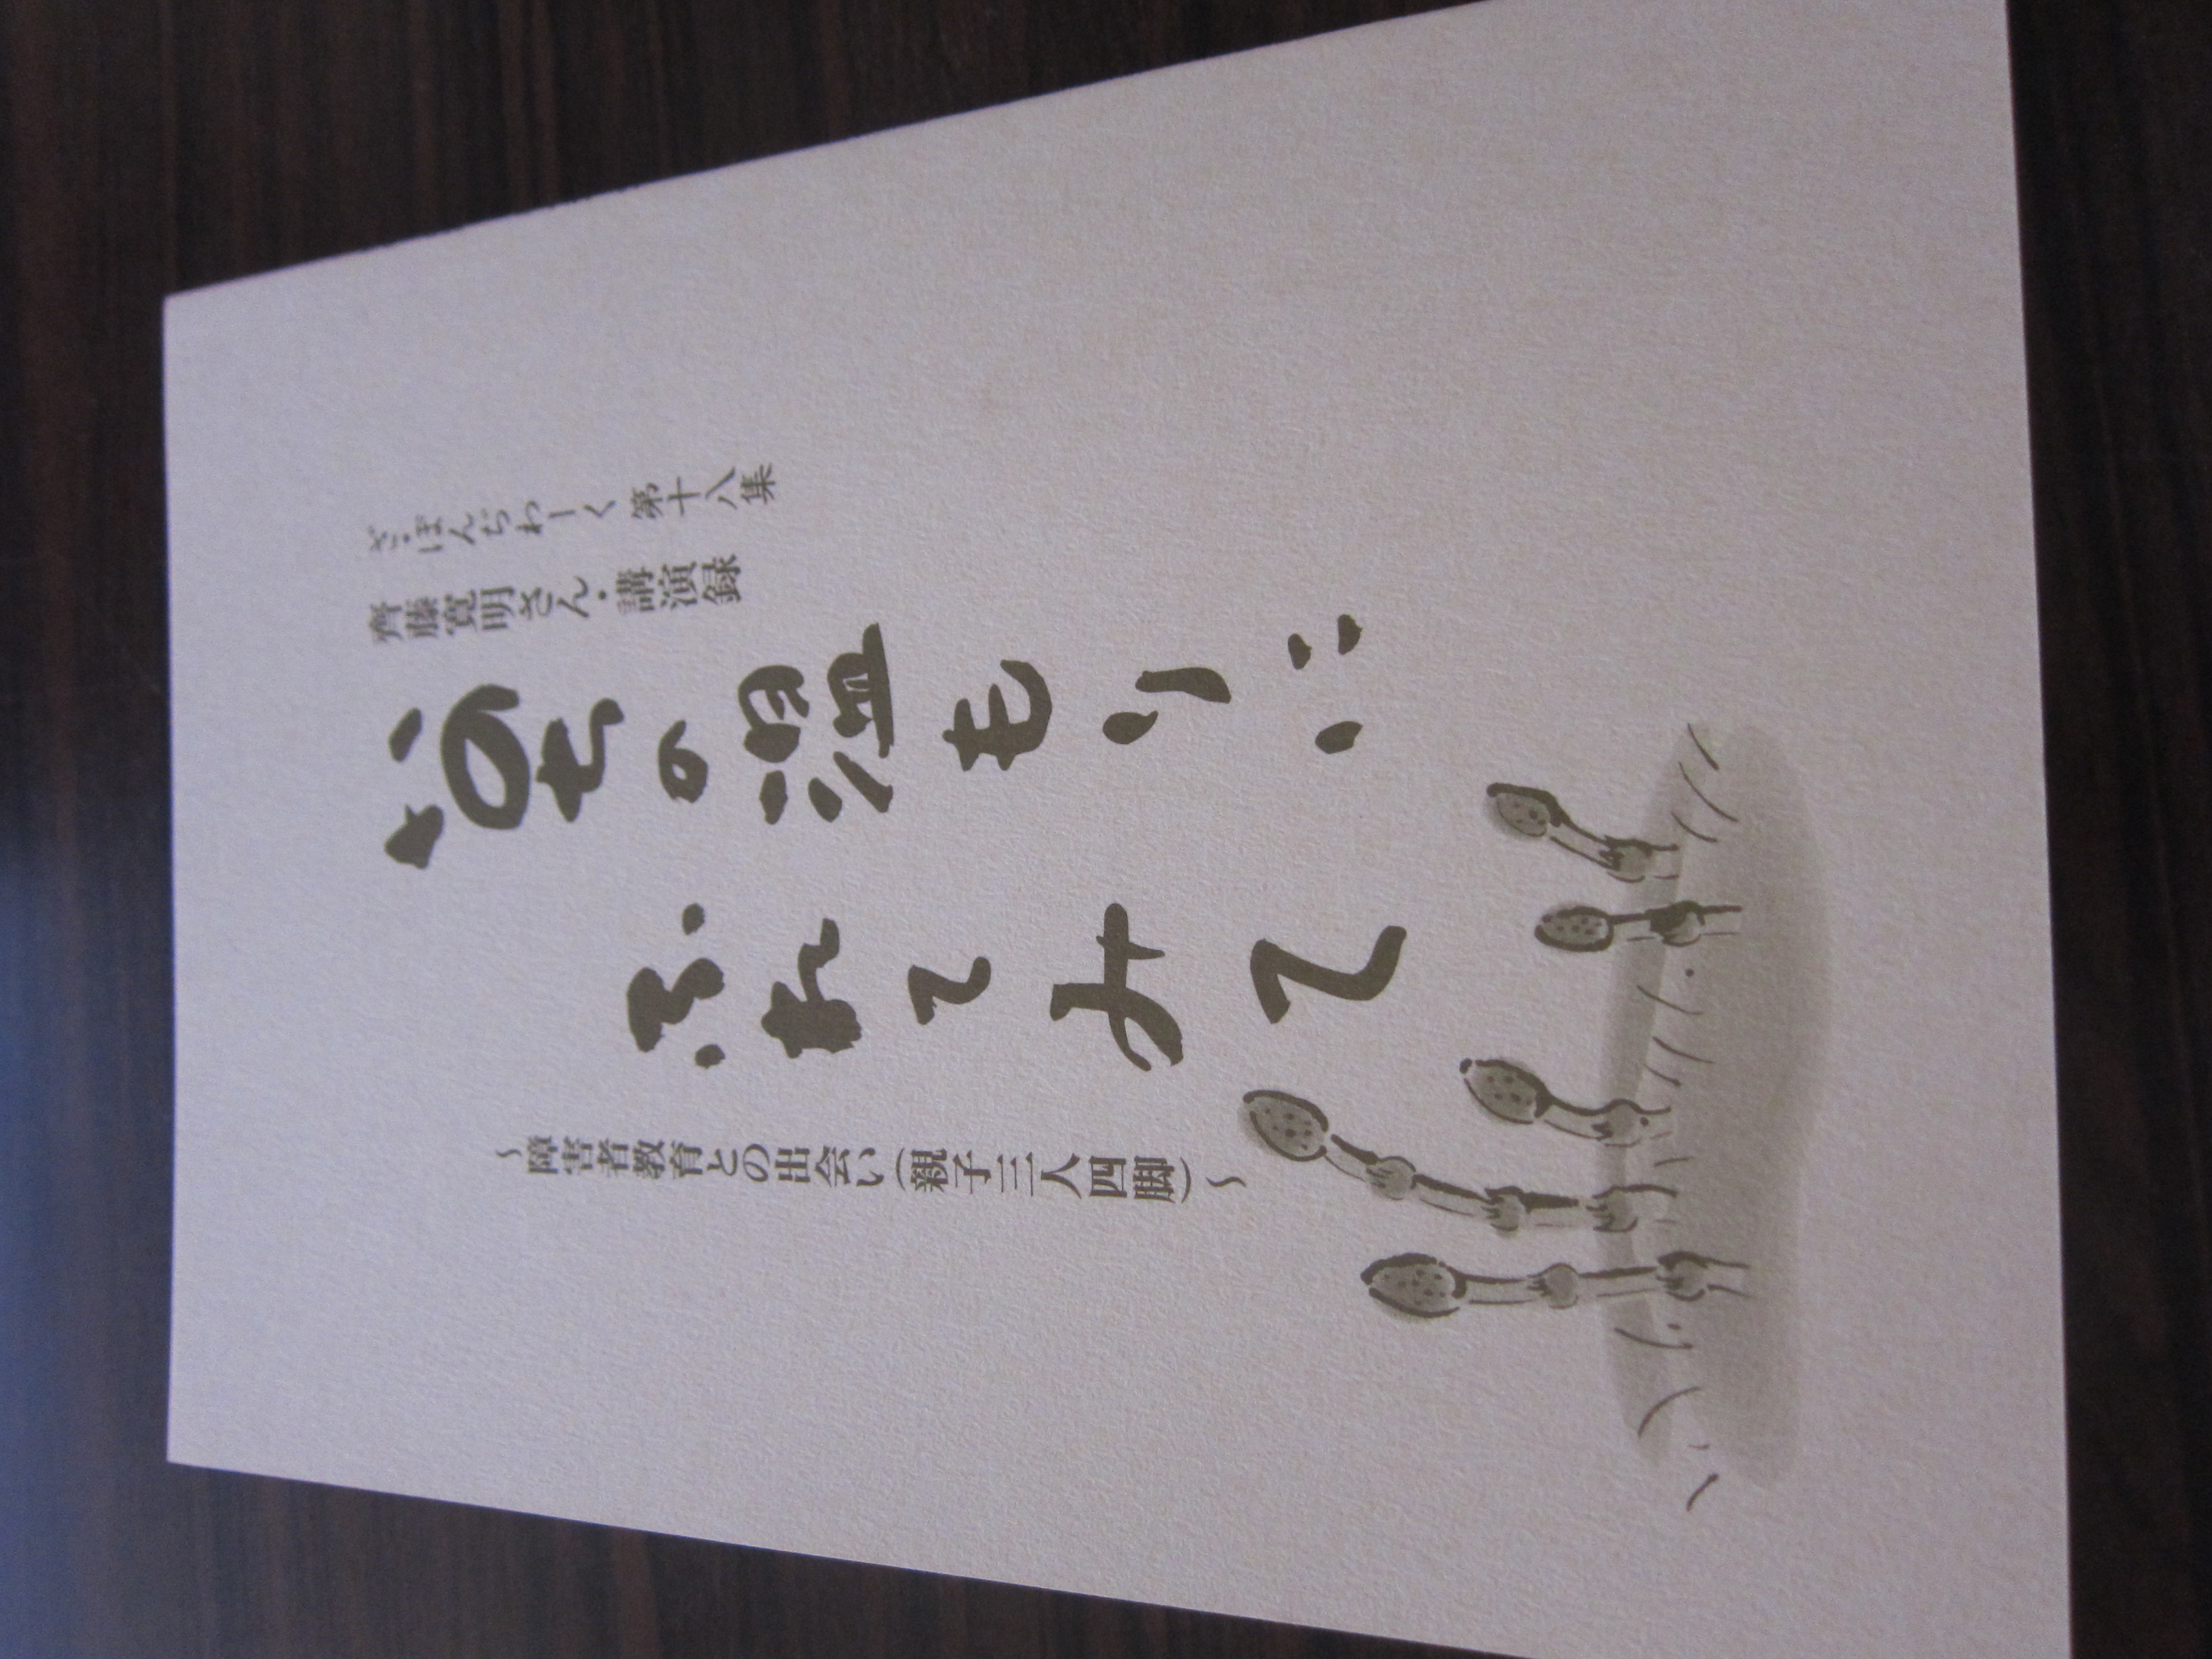 ざ・ぼんぢわーく 第十八集
齊藤寛明さん・講演録
いのちの温もりに
ふれてみて
～障害者教育との出会い(親子三人四脚)～